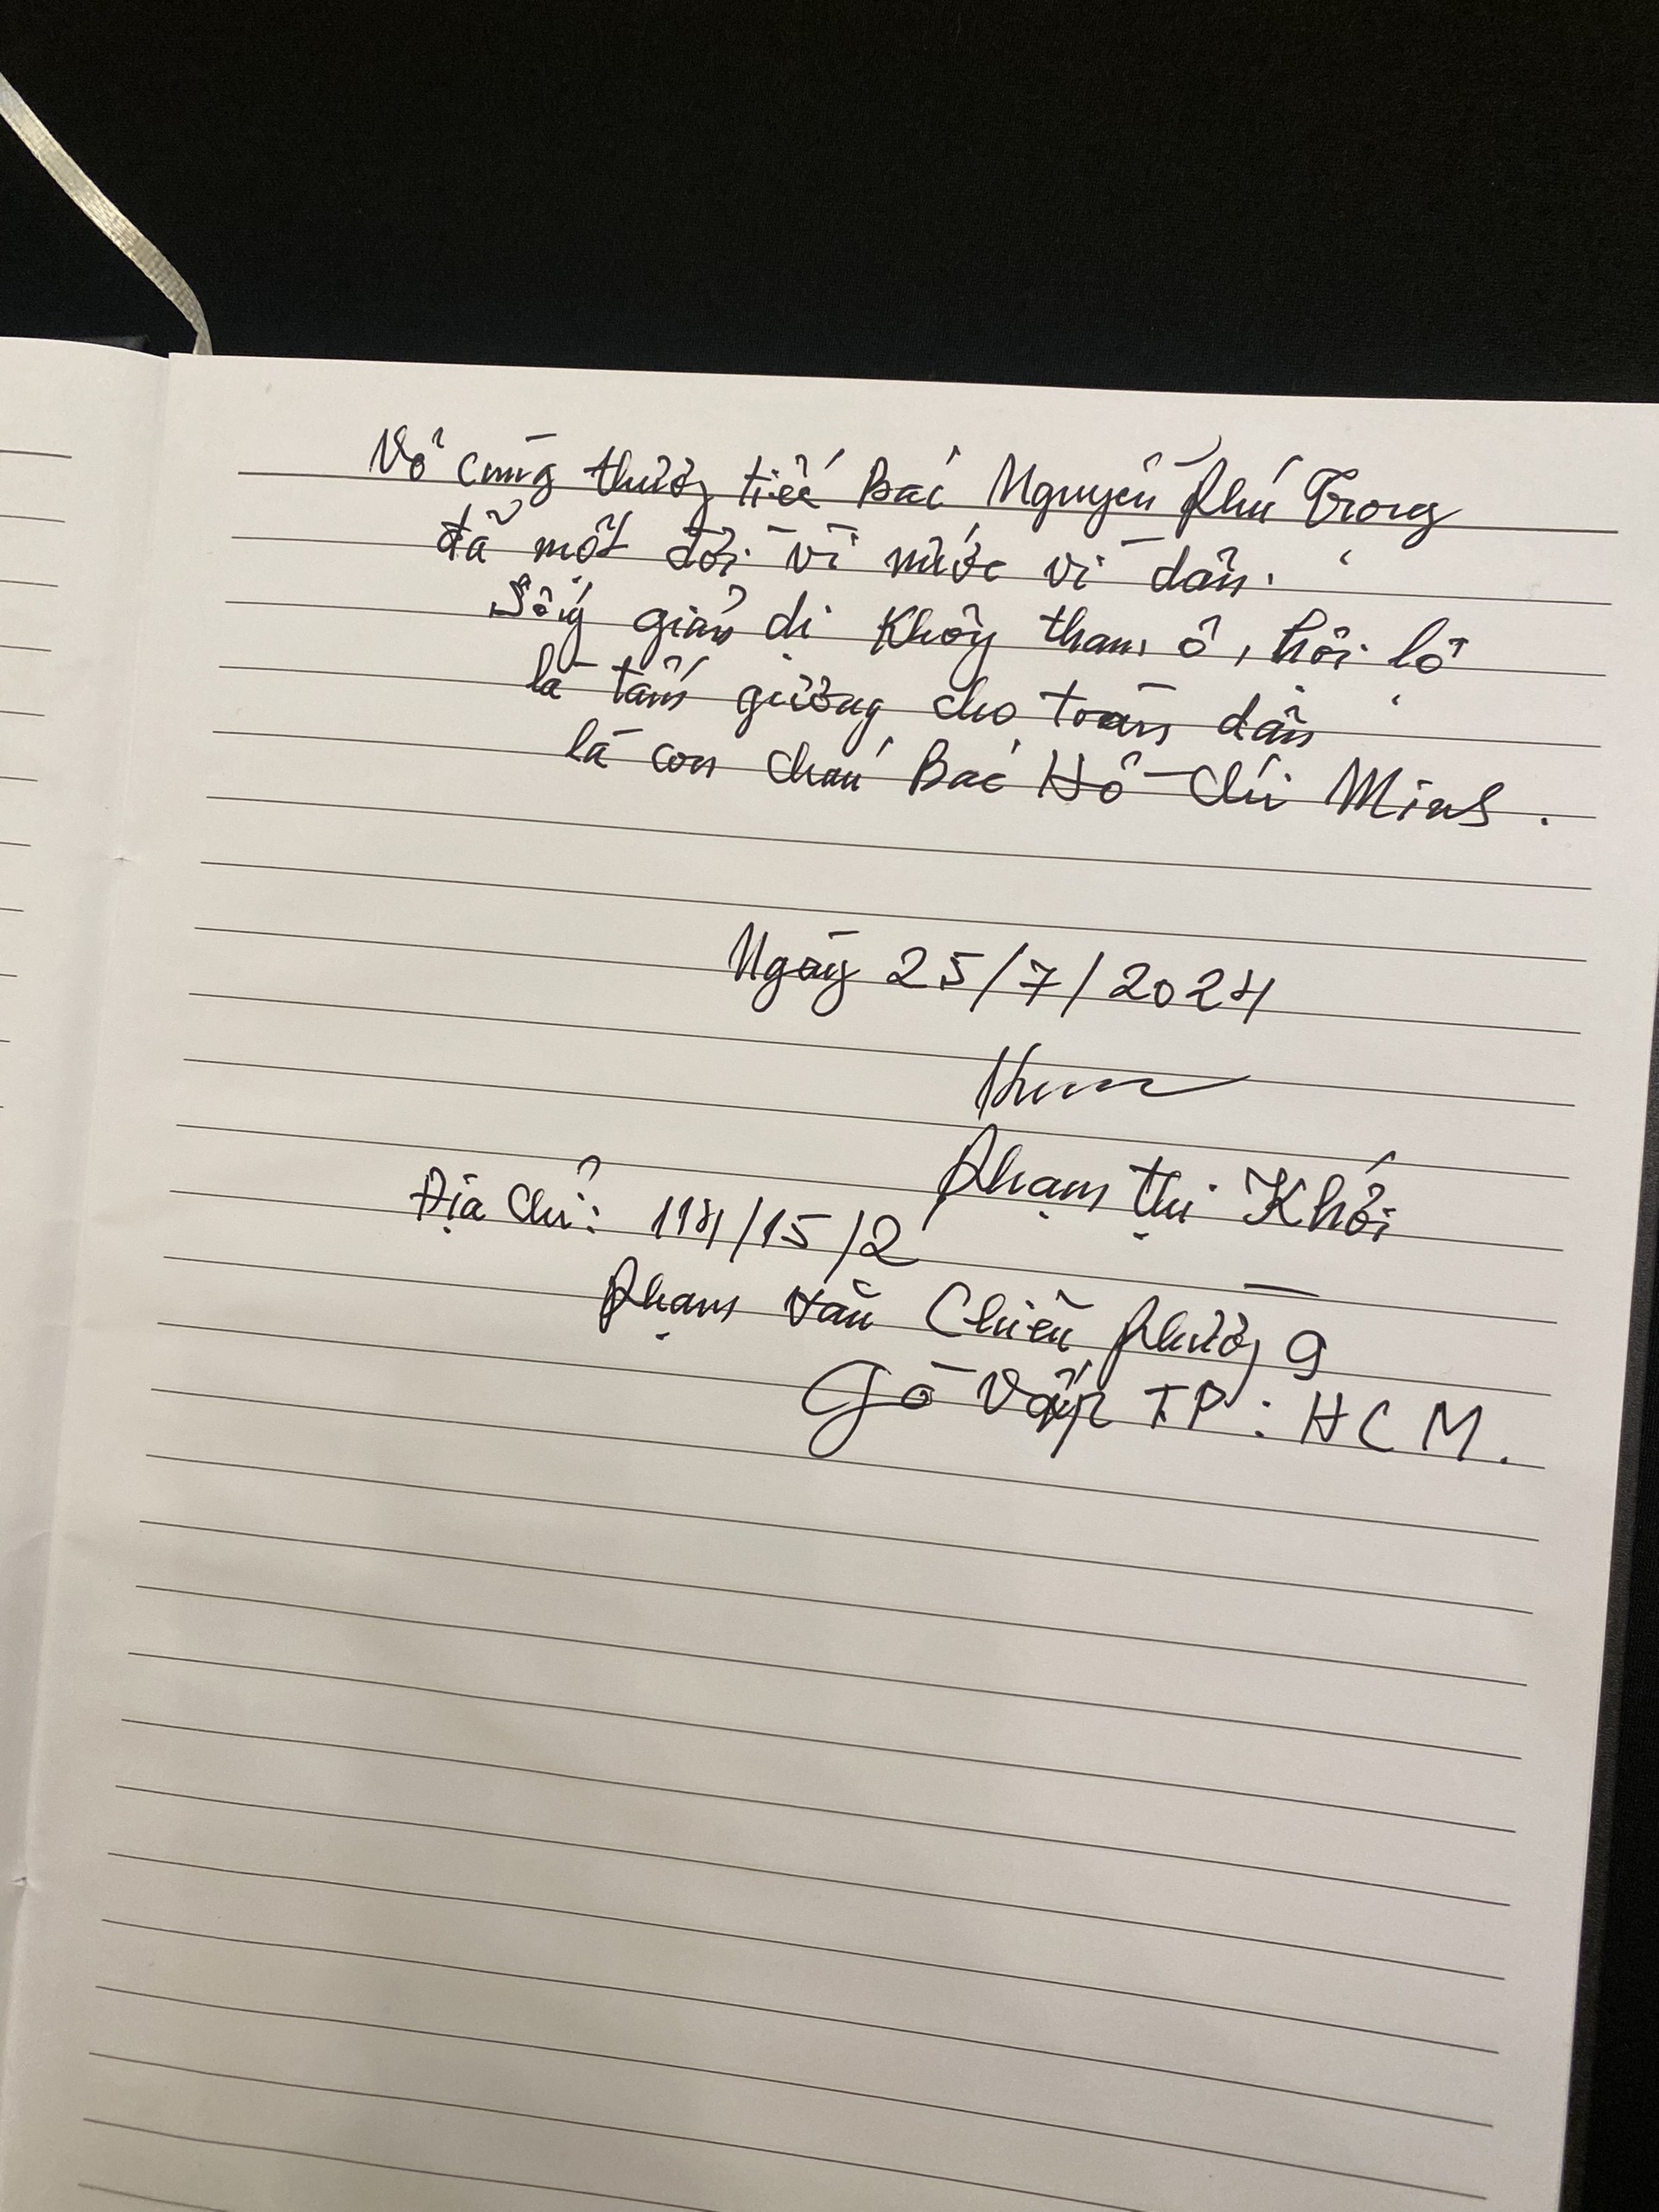 Vô cùng thương tiếc Bác Nguyễn Phú Trọng
đã một đời vì nước vì dân.
Sống giản dị không tham ô, hối lộ
là tấm gương cho toàn dân
là con cháu Bác Hồ Chí Minh.
Ngày 25/7/2024
Phạm Thị Khói
Địa chỉ: 114/15/2
Phạm Văn Chiêu phường 9
Gò Vấp TP: HCM.